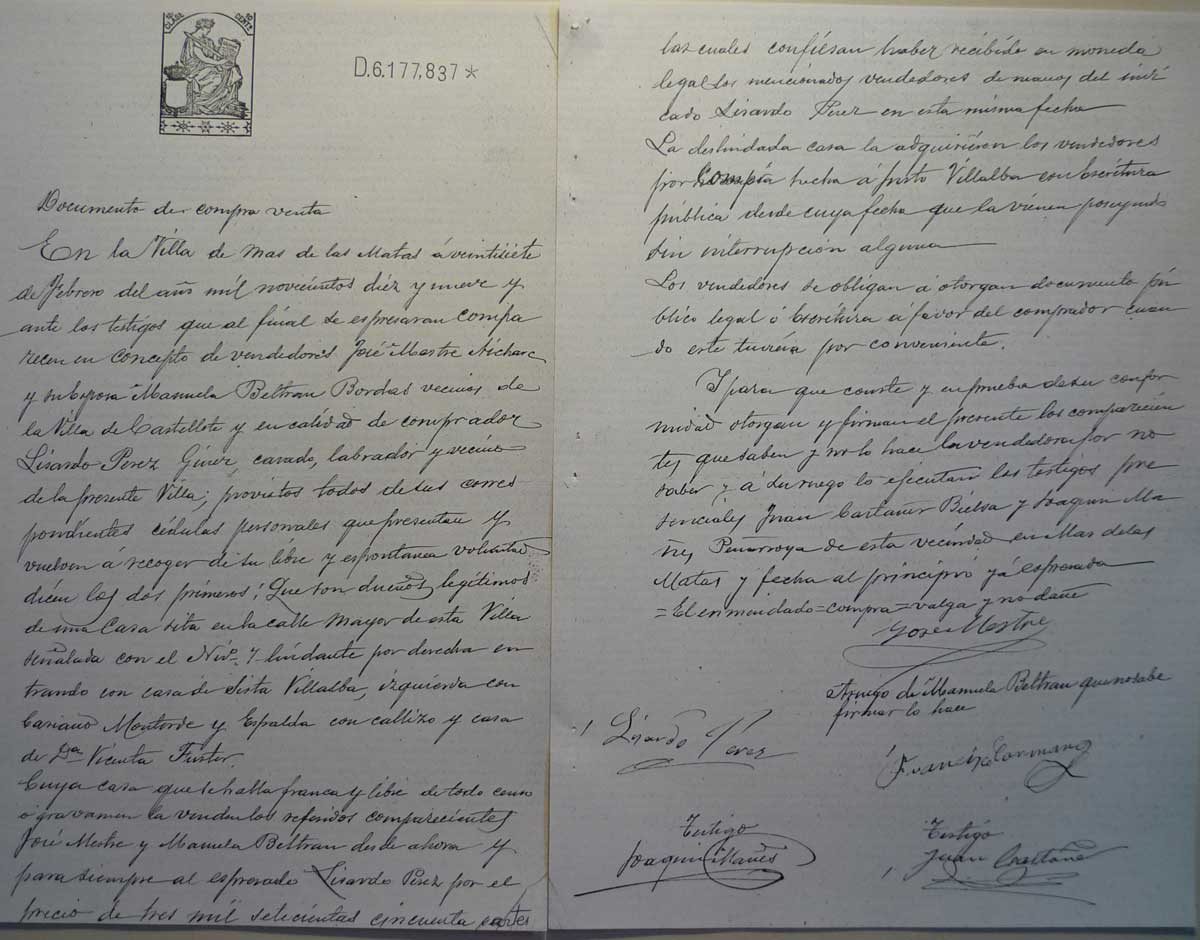 CLASE
CENTS
D.6.177,837*
Documento de compra venta
En la Villa de Mas de las Matas á veintisiete
de Febrero del año mil novecientos diez y nueve y
ante los testigos que al final se espresaran compa
recen en concepto de vendedores José Mestre
y su Esposa Manuela Beltran Bordas vecinos de
la Villa de Castellote y en calidad de comprador
Lisardo Perez Giner, casado, labrador y vecino
de la presente Villa; provistos todos de sus corres
pondientes cédulas personales que presentan y
vuelven á recoger de su libre y espontanea voluntad
dicen los dos primeros; Que son dueños legítimos
de una Casa sita en la calle Mayor de esta Villa
señalada con el 7 lindante por derecha en
trando con casa de Sista Villalba, izquierda con
Montorde y Espalda con callizo y casa
de Dña Vicenta Fuster.
Cuya casa que se halla franca y libre de todo censo
ó gravamen la venden los referidos comparecientes
José Mestre y Manuela Beltran desde ahora y
para siempre al espresado Lisardo Pérez por el
precio de tres mil setecientas cincuenta
las cuales confiesan haber recibido en moneda
legal los mencionados vendedores de manos del indi
cado Lisardo Pérez en esta misma fecha
La deslindada casa la adquirieron los vendedores
por compra hecha á Justo Villalba con Escritura
pública desde cuya fecha que la vienen poseyendo
sin interrupción alguna
Los vendedores se obligan á otorgar documento pú
blico legal ó Escritura á favor del comprador cuan
do este tuviera por conveniente.
Y para que conste y en prueba de su confor
midad otorgan y firman el presente los comparecien
tes que saben y no lo hace la vendedora por no
saber y á su ruego lo ejecutan los testigos pre
senciales Juan Castañer Bielsa y Joaquin Ma
ñes Peñarroya de esta vecindad en Mas de las
Matas y fecha al principio yá espresada
=El enmendado=compra=valga y no dañe
José Mestre
A ruego de Manuela Beltran que no sabe
firmar lo hace
Lisardo Pérez
Testigo
Joaquin Mañes
Testigo
Juan Castañer